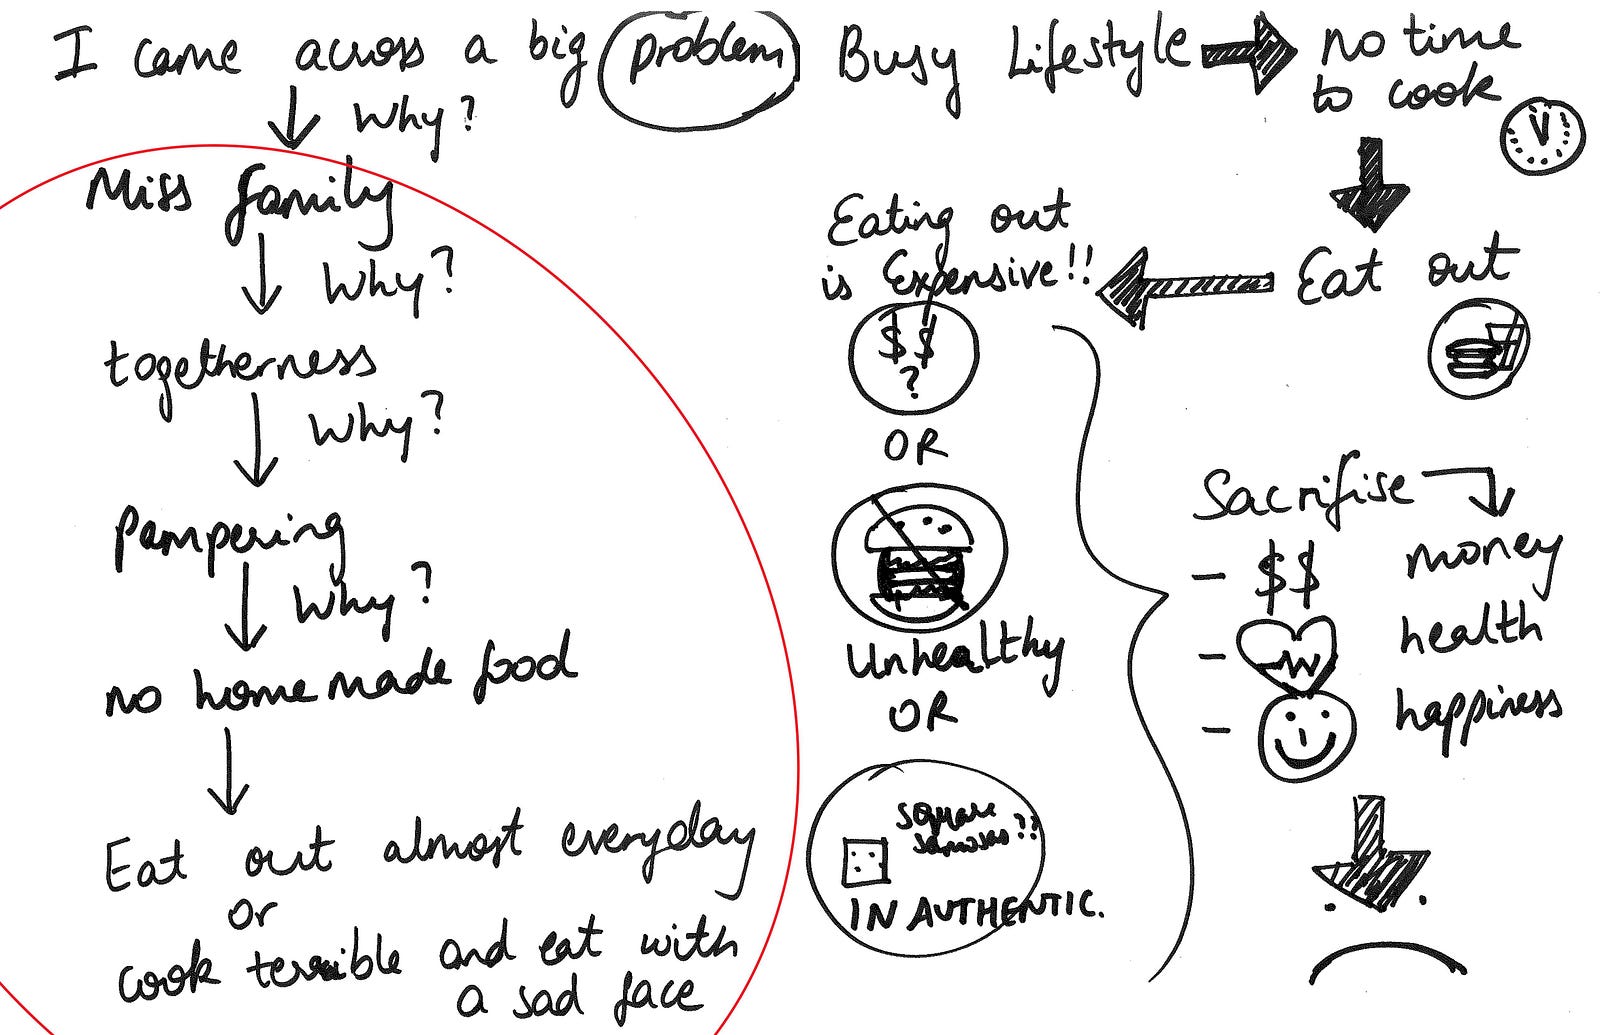 I came across a big problem
Why?
Miss family
Why?
togetherness
Why?
Pampering
Why?
no home made food
Eat out almost everyday
or
cook terrible and eat with
a sad face
Busy Lifestyle
no time
to cook
Eat out
Eating out
is Expensive!!
$ $
?
OR
Unhealthy
OR
square
samosas??
IN AUTHENTIC.
Sacrifise
- $$ money
- health
- happiness